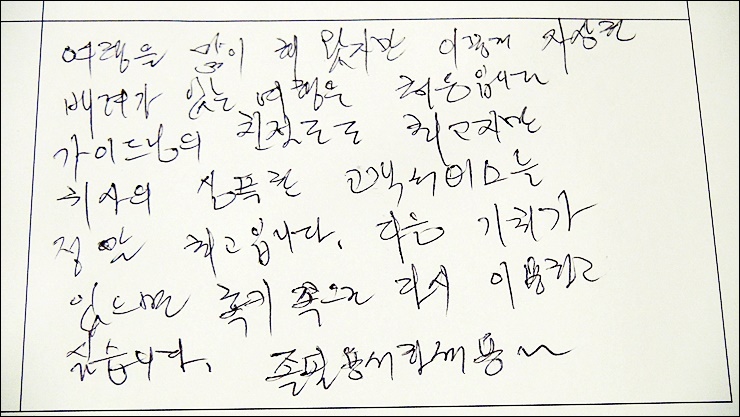 여행을 많이 해 왔지만 이렇게 자상한
배려가 있는 여행은 처음입니다
가이드님의 친절도 최고지만
회사의 심플한 고객서비스는
정말 최고입니다. 다음 기회가
있으면 혹기 쪽으로 다시 이용하고
싶습니다. 졸필용서하세용~